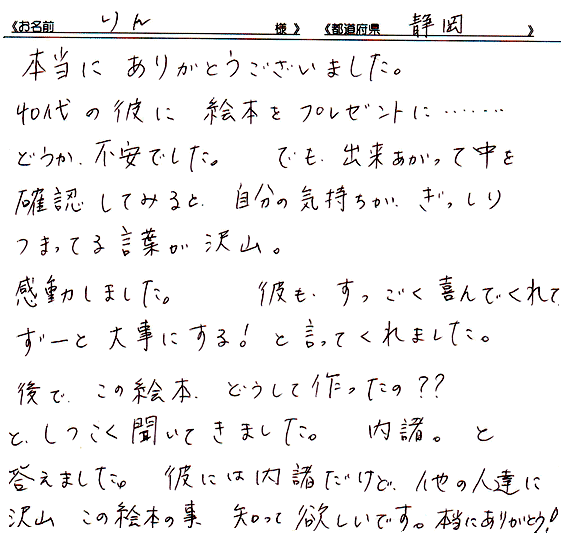 《お名前 りん 様 》 《都道府県 静岡 》
本当に ありがとうございました。
40代の彼に 絵本を プレゼントに……
どうか、不安でした。 でも、出来あがって中を
確認してみると、自分の気持ちが、ぎっしり
つまってる言葉が沢山。
感動しました。 彼も、すっごく喜んでくれて
ずーと大事にする！と言ってくれました。
後で、この絵本、どうして作ったの？？
と、しつこく聞いてきました。 内諸。と
答えました。 彼には内諸だけど、他の人達に
沢山 この絵本の事 知って欲しいです。本当にありがとう！